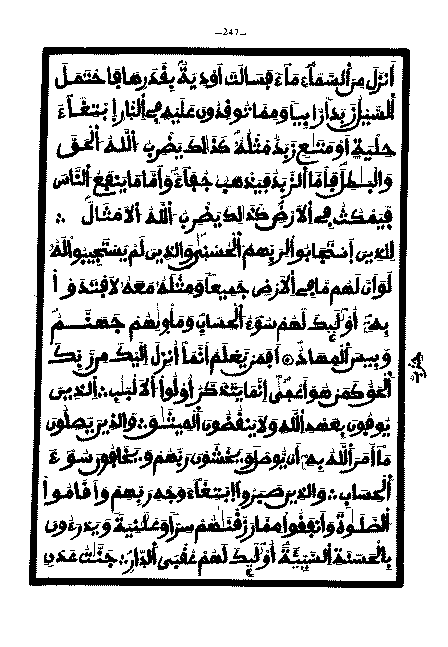 —247—
أنزل من السماء ماء فسالت أودية بقدرها فاحتمل
السيل زبدا رابيا ومما توقدون عليه في النار ابتغاء
حلية أو متع زبد مثله كذلك يضرب الله الحق
والبطل فأما الزبد فيذهب جفاء وأما ما ينفع الناس
فيمكث في الأرض كذلك يضرب الله الأمثال ∴
للذين استجابوا لربهم الحسنى والذين لم يستجيبوا له
لو أن لهم ما في الأرض جميعا ومثله معه لافتدوا
به أوليك لهم سوء الحساب ومأويهم جهنم
وبيس المهاد ∴ أفمن يعلم أنما أنزل إليك من ربك
الحق كمن هو أعمى إنما يتذكر أولوا الألبب ∴ الذين
يوفون بعهد الله ولا ينقضون الميثق ∴ والذين يصلون
ما أمر الله به أن يوصل ويخشون ربهم ويخافون سوء
الحساب ∴ والذين صبروا ابتغاء وجه ربهم وأقاموا
الصلوة وأنفقوا مما رزقنهم سرا وعلنية ويدرءون
بالحسنة السيئة أوليك لهم عقبى الدار ∴ جنت عدن